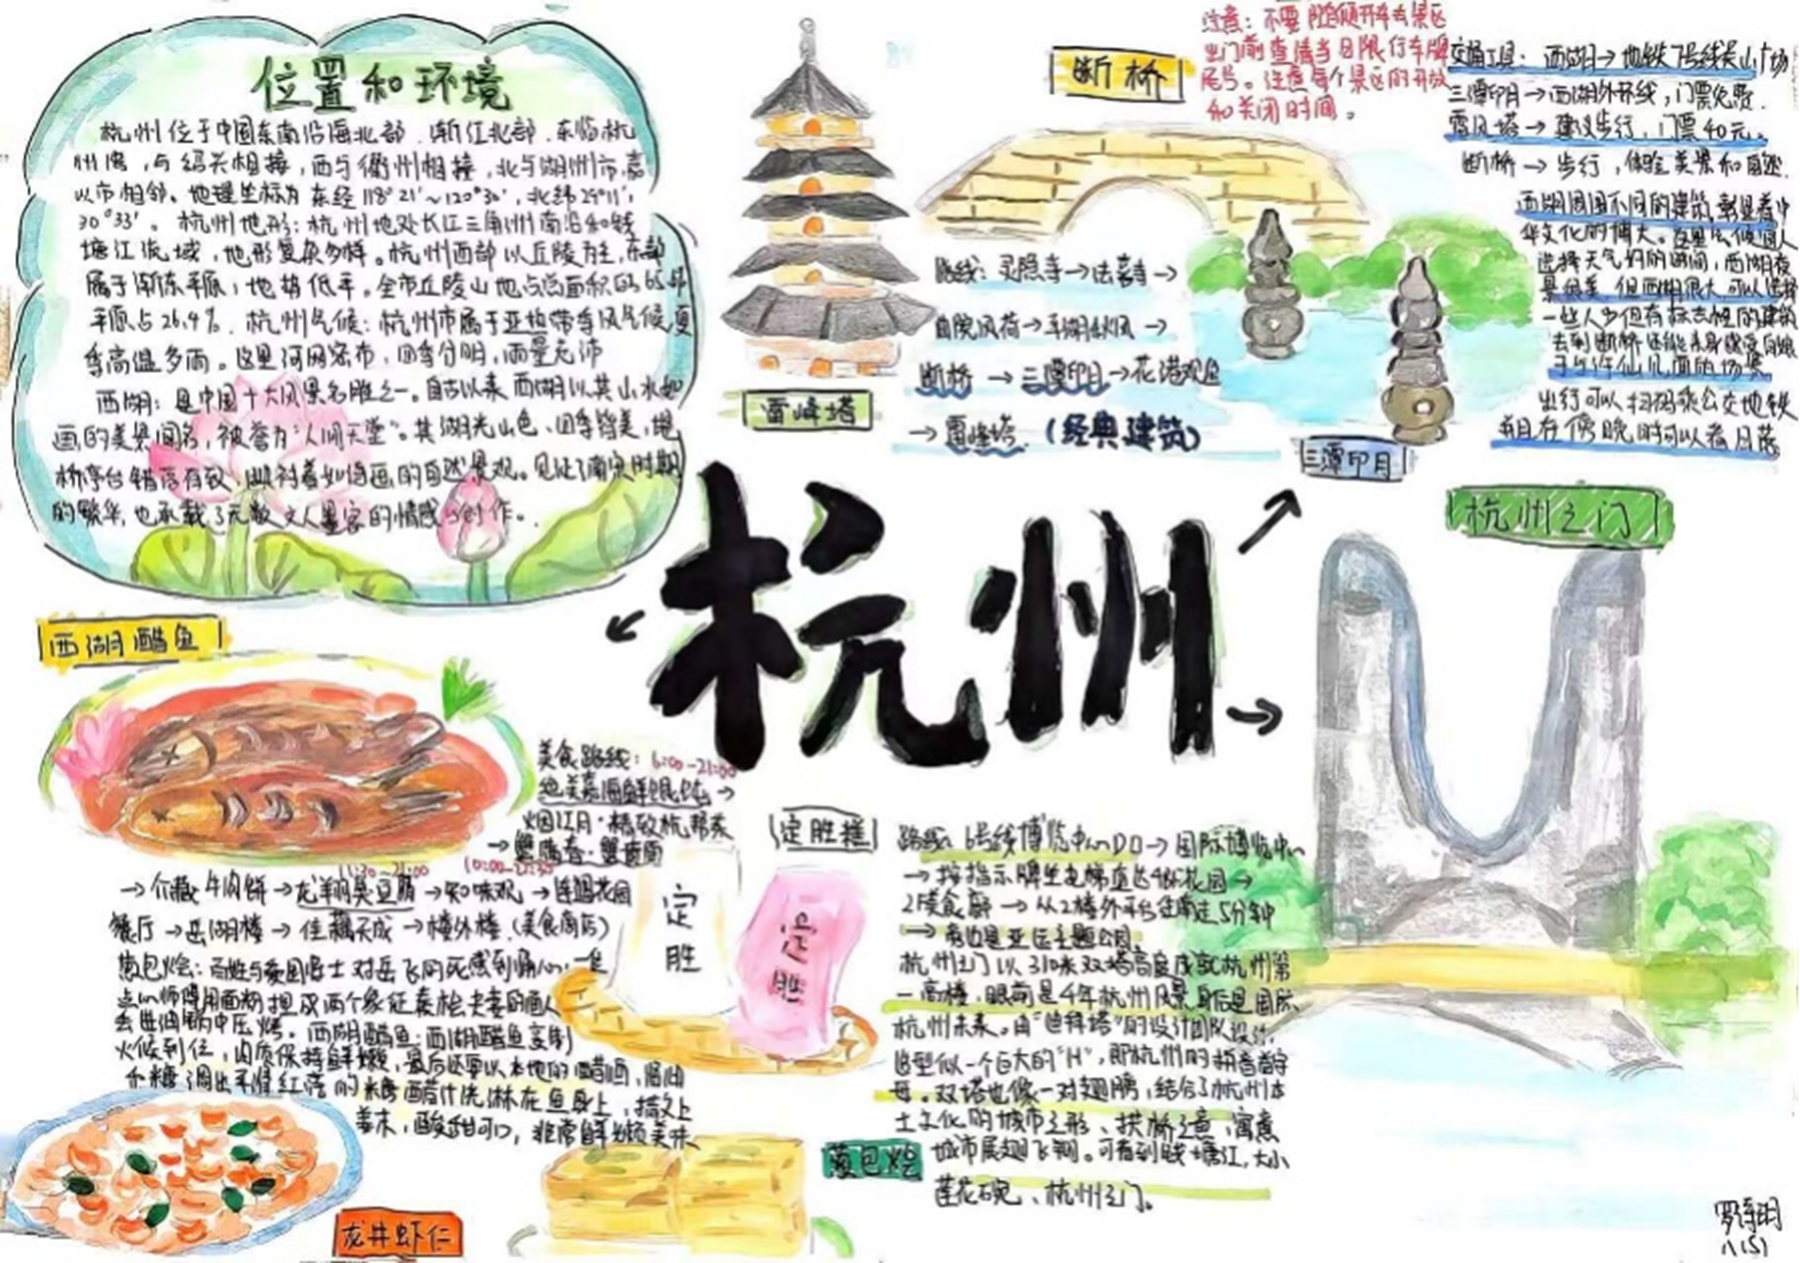 位置和环境
杭州位于中国东南沿海北部、浙江北部、东临杭
州湾，与绍兴相接，西与衢州相接，北与湖州市、嘉
以市相邻。地理坐标为东经118°21′~120°30′，北纬29°11′,
30°33′。杭州地形：杭州地处长江三角州南沿和钱
塘江流域，地形复杂多样。杭州西部以丘陵为主，东部
属于浙东平原，地势低平。全市丘陵山地占总面积的
平原占26.4%。杭州气候：杭州市属于亚热带季风气候，夏
季高温多雨。这里河网密布，四季分明，雨量充沛
西湖：是中国十大风景名胜之一。自古以来西湖以其山水如
画的美景闻名，被誉为“人间天堂”。其湖光山色、四季皆美，
桥亭台错落有致，映衬着如诗画的自然景观。见证了南宋时期
的繁华，也承载了无数文人墨客的情感与创作。
雷峰塔
断桥
注意：不要随便开车去景区
出门前查清当日限行车牌
尾号。注意每个景区的开放
和关闭时间。
交通工具：西湖→地铁7号线吴山广场
三潭印月→西湖外环线，门票免费.
雷风塔→建议步行，门票40元。
断桥→步行，体验美景和自然.
西湖周围不同的建筑彰显着中
华文化的博大。这里
选择天气好的时间，西湖夜
景很美，但西湖很大，可以选择
一些人少但有标志性的建筑
去到断桥还能亲身感受白娘
子与许仙见面的场景
出行可以扫码乘公交地铁
并且在傍晚时可以看日落
路线：灵隐寺→法喜寺→
曲院风荷→平湖秋风→
断桥→三潭印月→花港观鱼
→雷峰塔.（经典建筑）
三潭印月
杭州
杭州之门
西湖醋鱼
美食路线：6:00-21:00
→
烟江月·精致杭帮菜
→蟹
11:30-21:00
→介藏牛肉饼→龙翔臭豆腐→知味观→连
餐厅→岳湖楼→佳藕天成→楼外楼.（美食商店）
葱包烩：百姓与爱国人士对岳飞的死感到痛心，一
点心师傅用面粉捏成两个象征秦桧夫妻的面人
去进油锅中压烤。西湖醋鱼：西湖醋鱼烹制
火候到位，肉质保持鲜嫩，最后还要以本地的醋
和糖调出平滑红亮的糖醋汁浇淋在鱼身上，撒上
姜末，酸甜可口，非常鲜嫩美味
定胜糕
定胜
定胜
龙井虾仁
葱包烩
路线：6号线博览中心D口→国际博览中心
→按指示牌坐电梯直达4楼花园→
2楼食廊→从2楼外平台往南走5分钟
→旁边是亚运主题公园。
杭州之门以310米双塔高度成就杭州第
一高楼，眼前是4年杭州风景，身后是国际
杭州未来。由“迪拜塔”的设计团队设计，
造型似一个巨大的“H”，即杭州的拼音首字
母。双塔也像一对翅膀，结合了杭州本
土文化的城市之形、拱桥之意，寓意
城市展翅飞翔。可看到钱塘江，大小
莲花碗、杭州之门。
八(5)